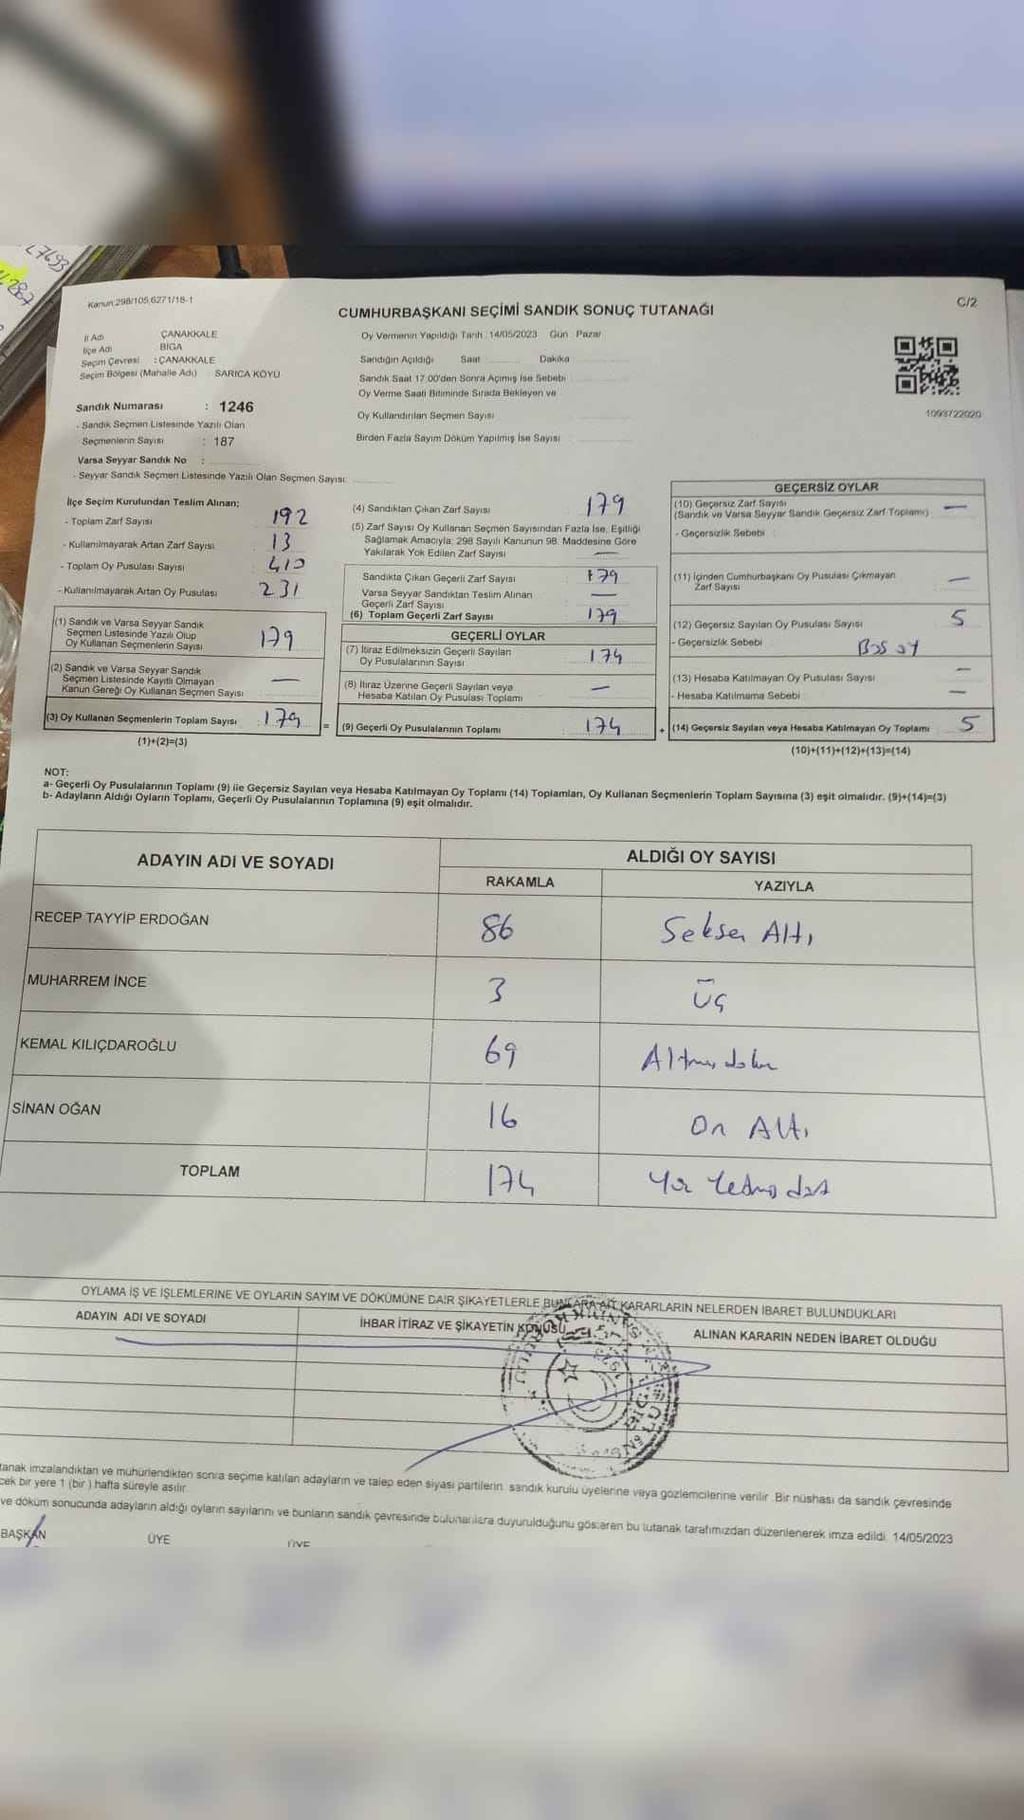 27693
Kanun:298/105,6271/18-1
C/2
CUMHURBAŞKANI SEÇİMİ SANDIK SONUÇ TUTANAĞI
İl Adı ÇANAKKALE
İlçe Adı BİGA
Seçim Çevresi : ÇANAKKALE
Seçim Bölgesi (Mahalle Adı) SARICA KÖYÜ
Sandık Numarası : 1246
- Sandık Seçmen Listesinde Yazılı Olan
Seçmenlerin Sayısı : 187
Varsa Seyyar Sandık No :
- Seyyar Sandık Seçmen Listesinde Yazılı Olan Seçmen Sayısı:
Oy Vermenin Yapıldığı Tarih :14/05/2023 Gün Pazar
Sandığın Açıldığı Saat Dakika
Sandık Saat 17.00'den Sonra Açımış İse Sebebi
Oy Verme Saati Bitiminde Sırada Bekleyen ve
Oy Kullandırılan Seçmen Sayısı
Birden Fazla Sayım Döküm Yapılmış İse Sayısı
1093722020
İlçe Seçim Kurulundan Teslim Alınan;
- Toplam Zarf Sayısı 192
- Kullanılmayarak Artan Zarf Sayısı 13
- Toplam Oy Pusulası Sayısı 410
- Kullanılmayarak Artan Oy Pusulası 231
(1) Sandık ve Varsa Seyyar Sandık
Seçmen Listesinde Yazılı Olup
Oy Kullanan Seçmenlerin Sayısı 179
(2) Sandık ve Varsa Seyyar Sandık
Seçmen Listesinde Kayıtlı Olmayan
Kanun Gereği Oy Kullanan Seçmen Sayısı —
(3) Oy Kullanan Seçmenlerin Toplam Sayısı 179 =
(1)+(2)=(3)
(4) Sandıktan Çıkan Zarf Sayısı 179
(5) Zarf Sayısı Oy Kullanan Seçmen Sayısından Fazla İse, Eşitliği
Sağlamak Amacıyla; 298 Sayılı Kanunun 98. Maddesine Göre
Yakılarak Yok Edilen Zarf Sayısı —
Sandıkta Çıkan Geçerli Zarf Sayısı 179
Varsa Seyyar Sandıktan Teslim Alınan —
Geçerli Zarf Sayısı
(6) Toplam Geçerli Zarf Sayısı 179
GEÇERLİ OYLAR
(7) İtiraz Edilmeksizin Geçerli Sayılan
Oy Pusulalarının Sayısı 174
(8) İtiraz Üzerine Geçerli Sayılan veya
Hesaba Katılan Oy Pusulası Toplamı —
(9) Geçerli Oy Pusulalarının Toplamı 174 +
GEÇERSİZ OYLAR
(10) Geçersiz Zarf Sayısı —
(Sandık ve Varsa Seyyar Sandık Geçersiz Zarf Toplamı)
- Geçersizlik Sebebi :
(11) İçinden Cumhurbaşkanı Oy Pusulası Çıkmayan —
Zarf Sayısı
(12) Geçersiz Sayılan Oy Pusulası Sayısı 5
- Geçersizlik Sebebi : Boş oy
(13) Hesaba Katılmayan Oy Pusulası Sayısı —
- Hesaba Katılmama Sebebi : —
(14) Geçersiz Sayılan veya Hesaba Katılmayan Oy Toplamı 5
(10)+(11)+(12)+(13)=(14)
NOT:
a- Geçerli Oy Pusulalarının Toplamı (9) ile Geçersiz Sayılan veya Hesaba Katılmayan Oy Toplamı (14) Toplamları, Oy Kullanan Seçmenlerin Toplam Sayısına (3) eşit olmalıdır. (9)+(14)=(3)
b- Adayların Aldığı Oyların Toplamı, Geçerli Oy Pusulalarının Toplamına (9) eşit olmalıdır.
ADAYIN ADI VE SOYADI ALDIĞI OY SAYISI
RAKAMLA YAZIYLA
RECEP TAYYİP ERDOĞAN 86 Seksen Altı
MUHARREM İNCE 3 Üç
KEMAL KILIÇDAROĞLU 69 Altmış dokuz
SİNAN OĞAN 16 On Altı
TOPLAM 174 Yüz Yetmiş dört
OYLAMA İŞ VE İŞLEMLERİNE VE OYLARIN SAYIM VE DÖKÜMÜNE DAİR ŞİKAYETLERLE BUNLARA AİT KARARLARIN NELERDEN İBARET BULUNDUKLARI
ADAYIN ADI VE SOYADI İHBAR İTİRAZ VE ŞİKAYETİN KONUSU ALINAN KARARIN NEDEN İBARET OLDUĞU
tanak imzalandıktan ve mühürlendikten sonra seçime katılan adayların ve talep eden siyasi partilerin, sandık kurulu üyelerine veya gözlemcilerine verilir. Bir nüshası da sandık çevresinde
cek bir yere 1 (bir) hafta süreyle asılır.
ve döküm sonucunda adayların aldığı oyların sayılarını ve bunların sandık çevresinde bulunanlara duyurulduğunu gösteren bu tutanak tarafımızdan düzenlenerek imza edildi. 14/05/2023
BAŞKAN ÜYE ÜYE